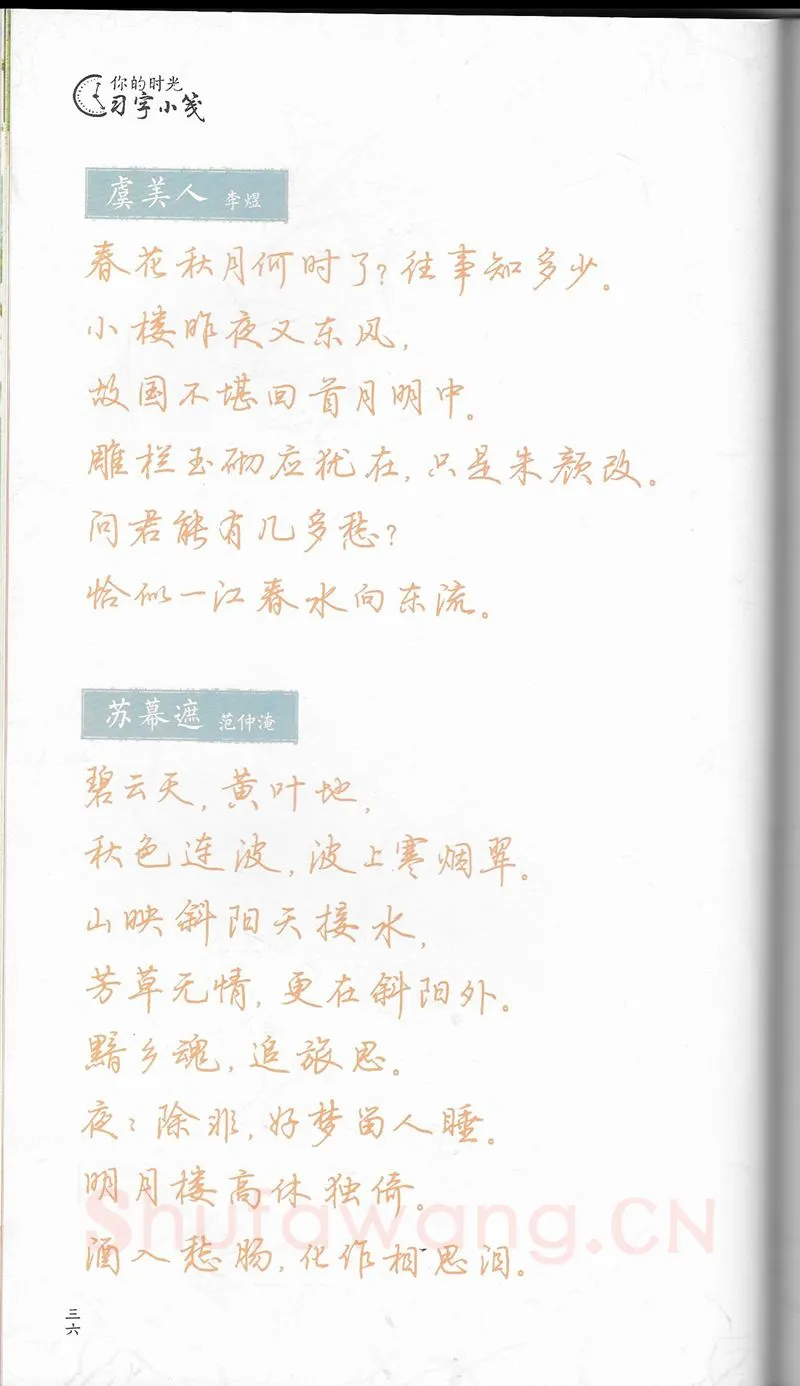 你的时光
习字小笺
虞美人 李煜
春花秋月何时了?往事知多少。
小楼昨夜又东风,
故国不堪回首月明中。
雕栏玉砌应犹在,只是朱颜改。
问君能有几多愁?
恰似一江春水向东流。
苏幕遮 范仲淹
碧云天,黄叶地,
秋色连波,波上寒烟翠。
山映斜阳天接水,
芳草无情,更在斜阳外。
黯乡魂,追旅思。
夜夜除非,好梦留人睡。
明月楼高休独倚。
酒入愁肠,化作相思泪。
Shufawang.CN
三六